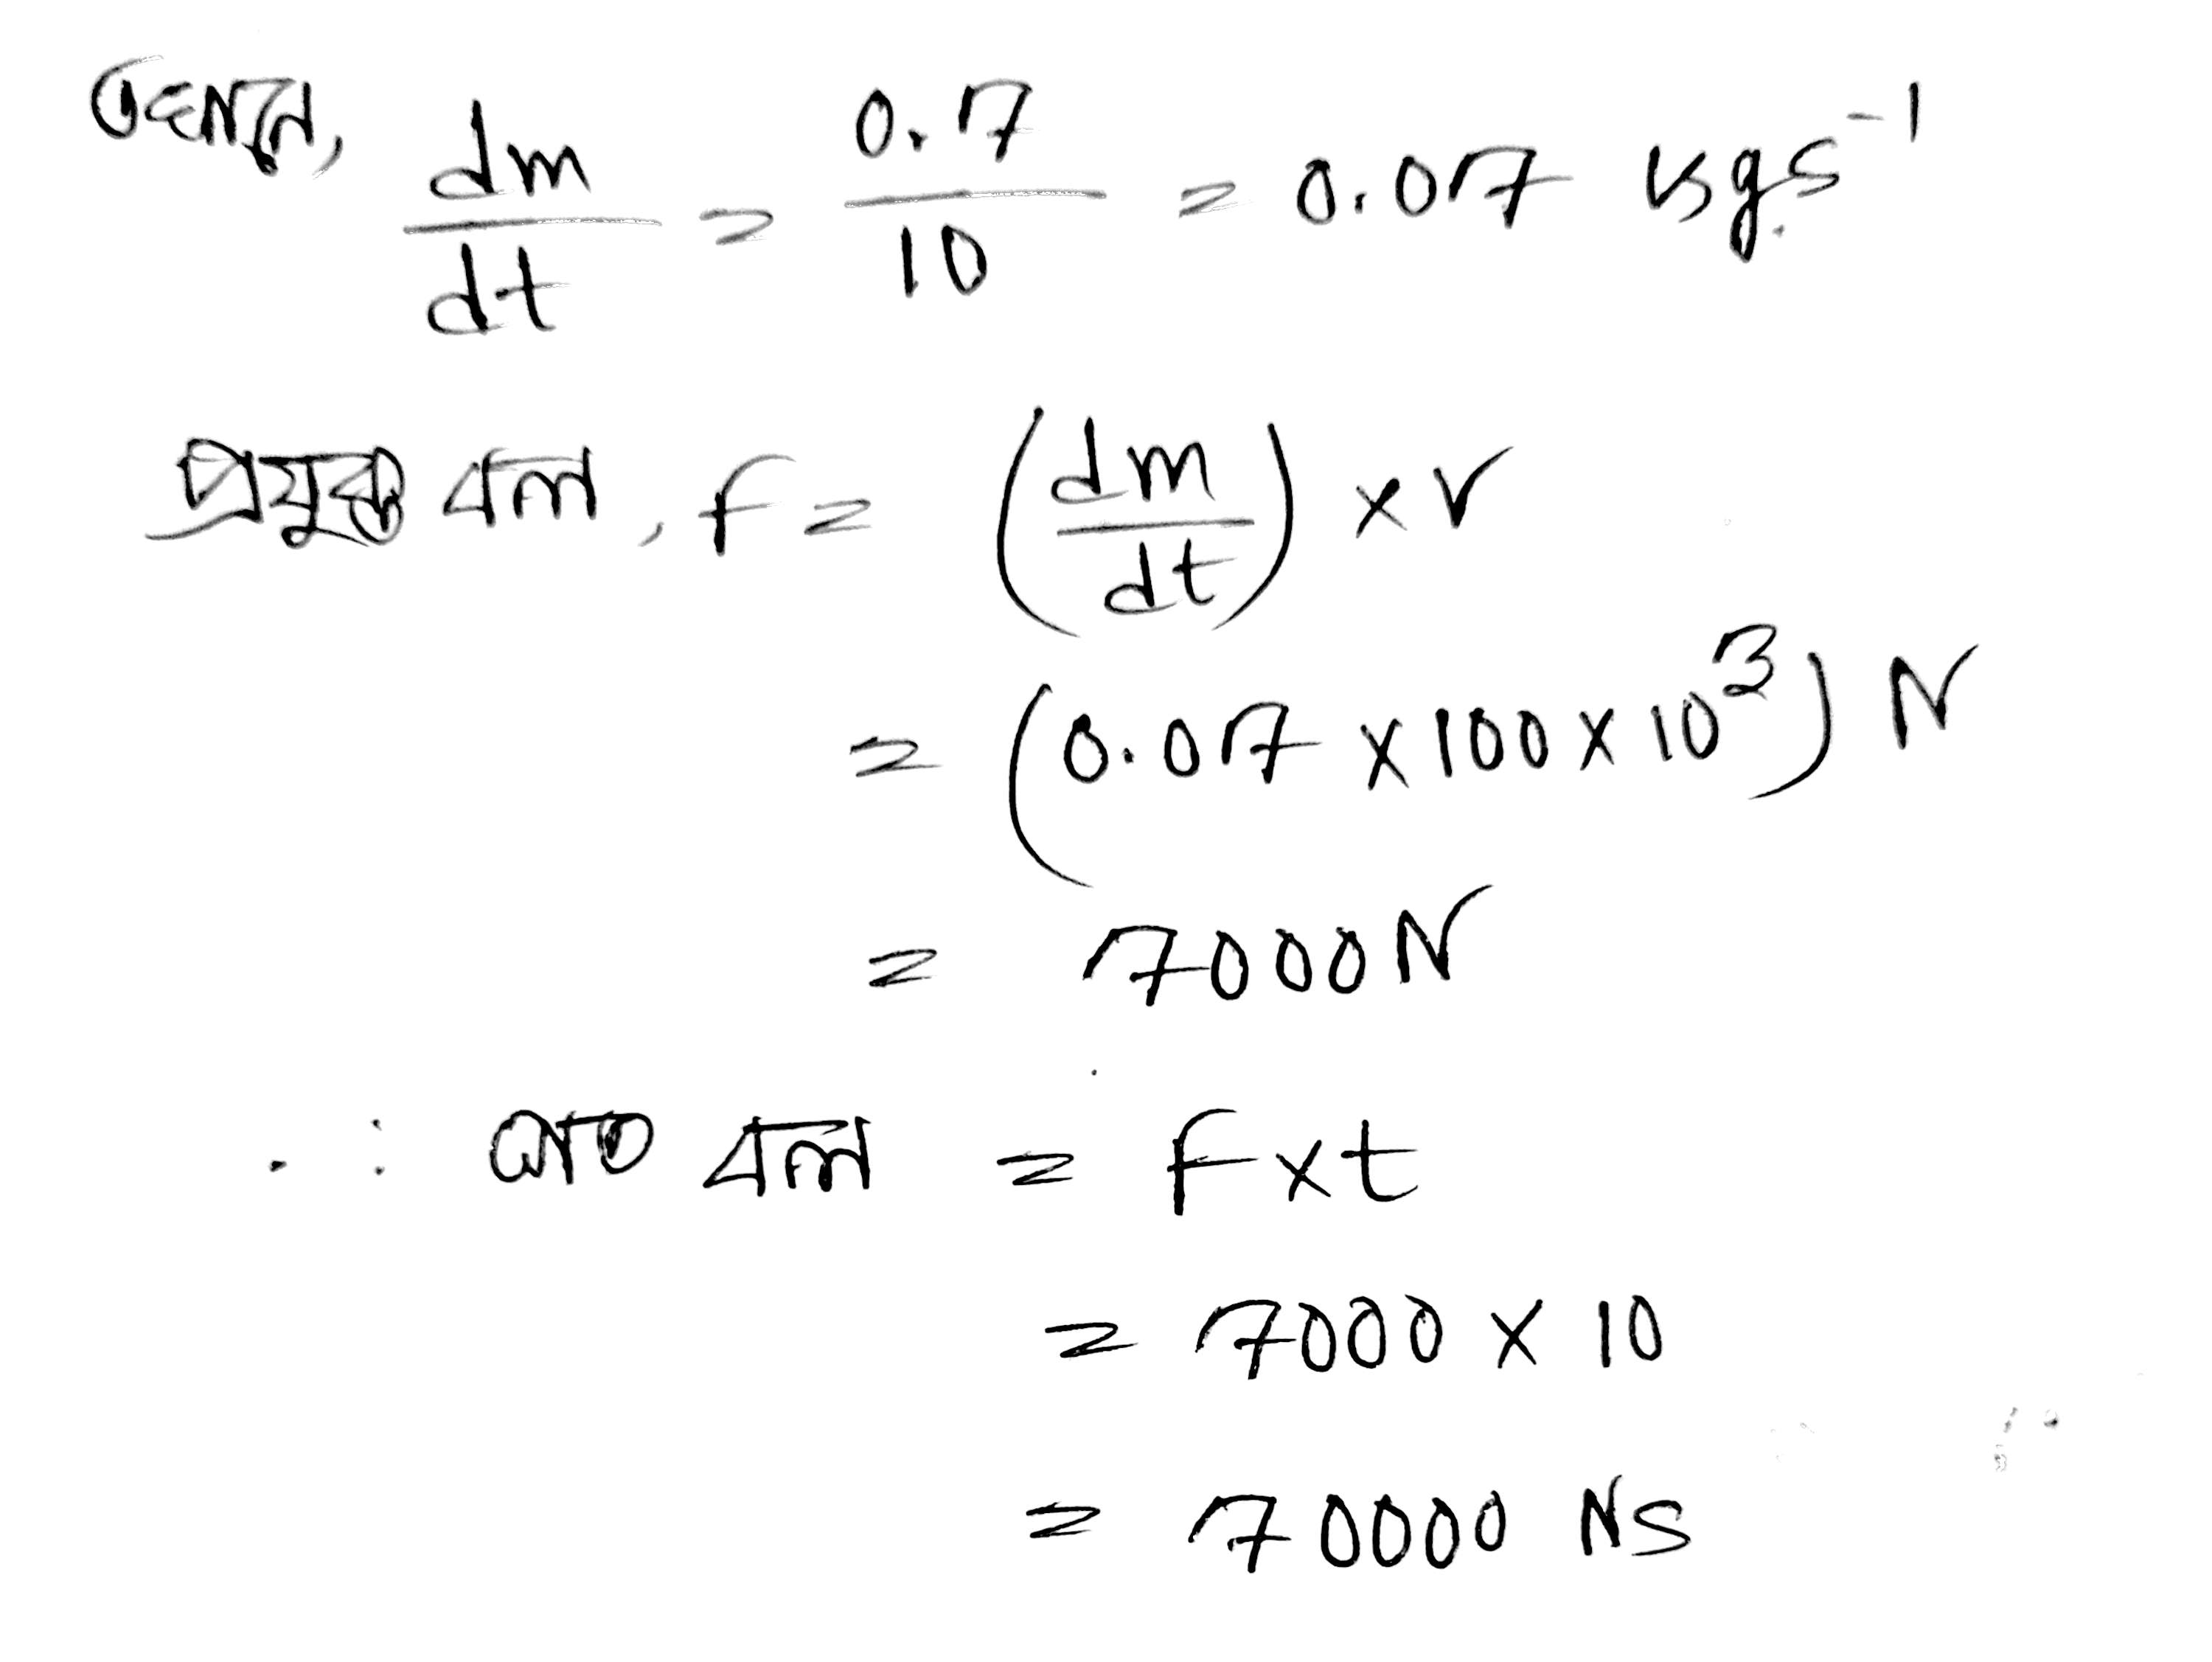 এখানে, dm/dt = 0.7/10 = 0.07 kgs⁻¹
প্রযুক্ত বল, F = (dm/dt) × v
= (0.07 × 100 × 10³) N
= 7000N
∴ ঘাত বল = F×t
= 7000 × 10
= 70000 NS